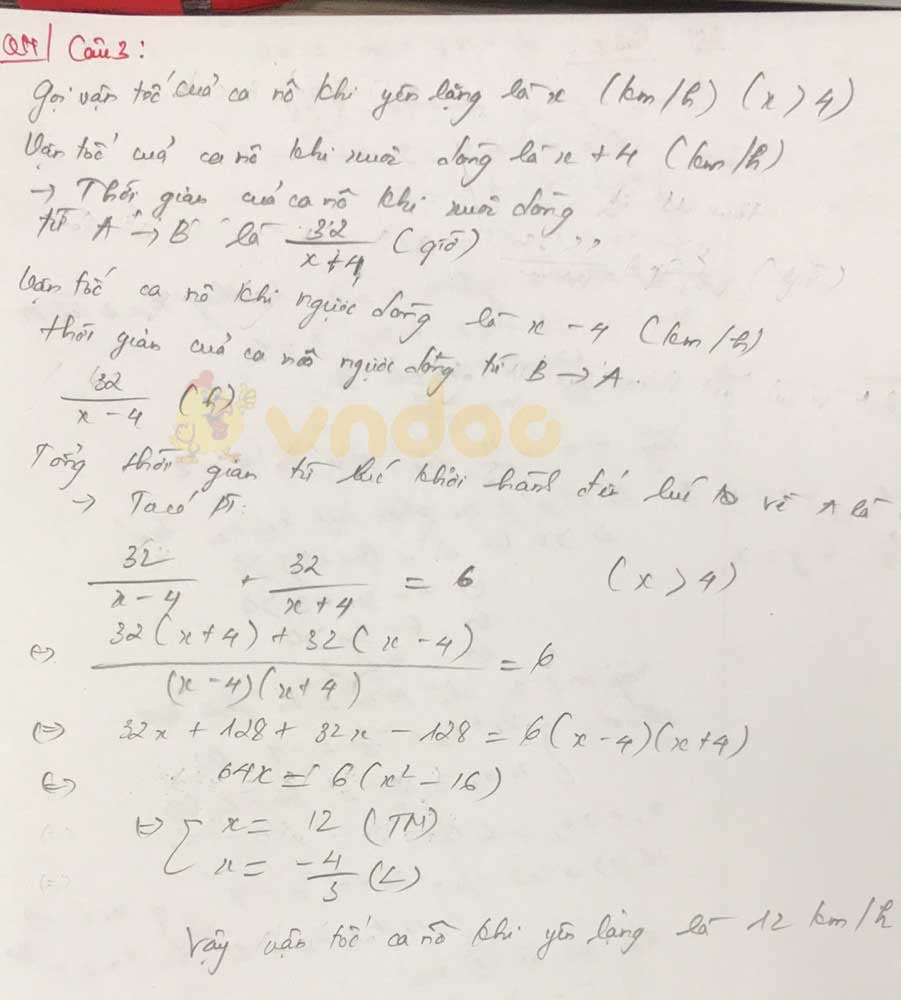 Câu 3:
Gọi vận tốc của ca nô khi yên lặng là x (km/h) (x > 4)
Vận tốc của ca nô khi xuôi dòng là x + 4 (km/h)
→ Thời gian của ca nô khi xuôi dòng
từ A → B là 32/(x+4) (giờ)
Vận tốc ca nô khi ngược dòng là x - 4 (km/h)
thời gian của ca nô ngược dòng từ B → A.
32/(x - 4) (h)
vndoc
Tổng thời gian từ lúc khởi hành đến lúc về A là
→ Ta có Pt:
32/(x - 4) + 32/(x + 4) = 6 (x > 4)
⇔ (32(x+4) + 32(x - 4))/((x - 4)(x + 4)) = 6
⇔ 32x + 128 + 32x - 128 = 6(x - 4)(x+4)
⇔ 64x = 6(x² - 16)
⇔ [ x = 12 (TM)
x = -4/3 (L)
Vậy vận tốc ca nô khi yên lặng là 12 km/h